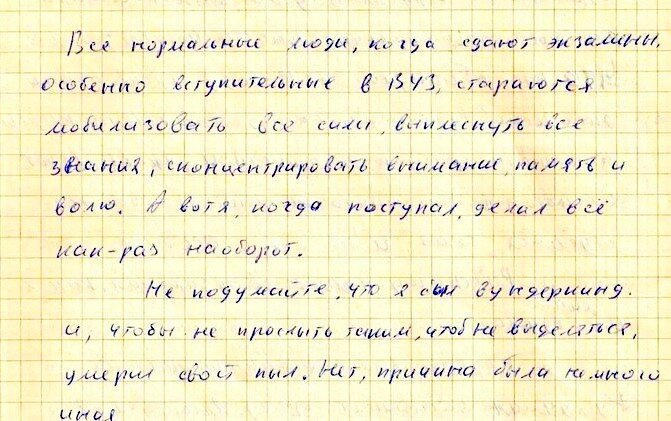 Все нормальные люди, когда сдают экзамены,
особенно вступительные в ВУЗ, стараются
мобилизовать все силы, выплеснуть все
знания, сконцентрировать внимание, память и
волю. А вот я, когда поступал, делал всё
как-раз наоборот.
Не подумайте, что я был вундеркинд.
и, чтобы не прослыть таким, чтоб не выделяться,
умерил свой пыл. Нет, причина была немного
иная